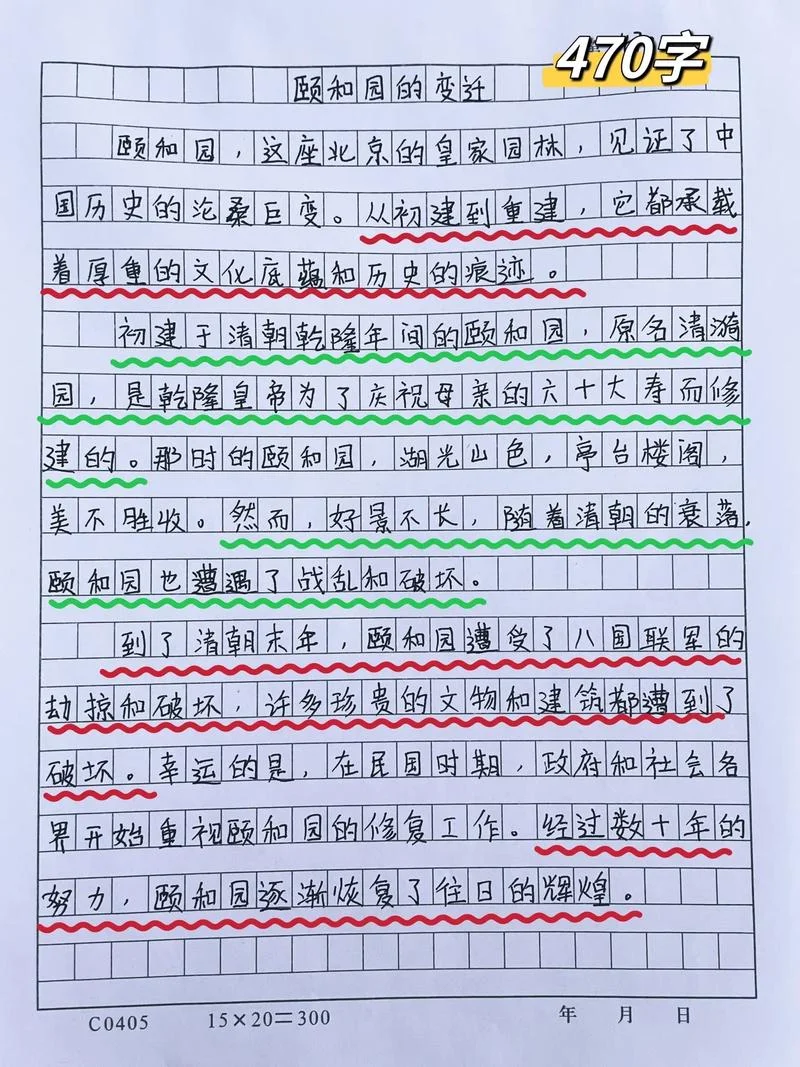 470字
颐和园的变迁
颐和园，这座北京的皇家园林，见证了中
国历史的沧桑巨变。从初建到重建，它都承载
着厚重的文化底蕴和历史的痕迹。
初建于清朝乾隆年间的颐和园，原名清漪
园，是乾隆皇帝为了庆祝母亲的六十大寿而修
建的。那时的颐和园，湖光山色，亭台楼阁，
美不胜收。然而，好景不长，随着清朝的衰落，
颐和园也遭遇了战乱和破坏。
到了清朝末年，颐和园遭受了八国联军的
劫掠和破坏，许多珍贵的文物和建筑都遭到了
破坏。幸运的是，在民国时期，政府和社会各
界开始重视颐和园的修复工作。经过数十年的
努力，颐和园逐渐恢复了往日的辉煌。
C0405 15×20=300 年 月 日